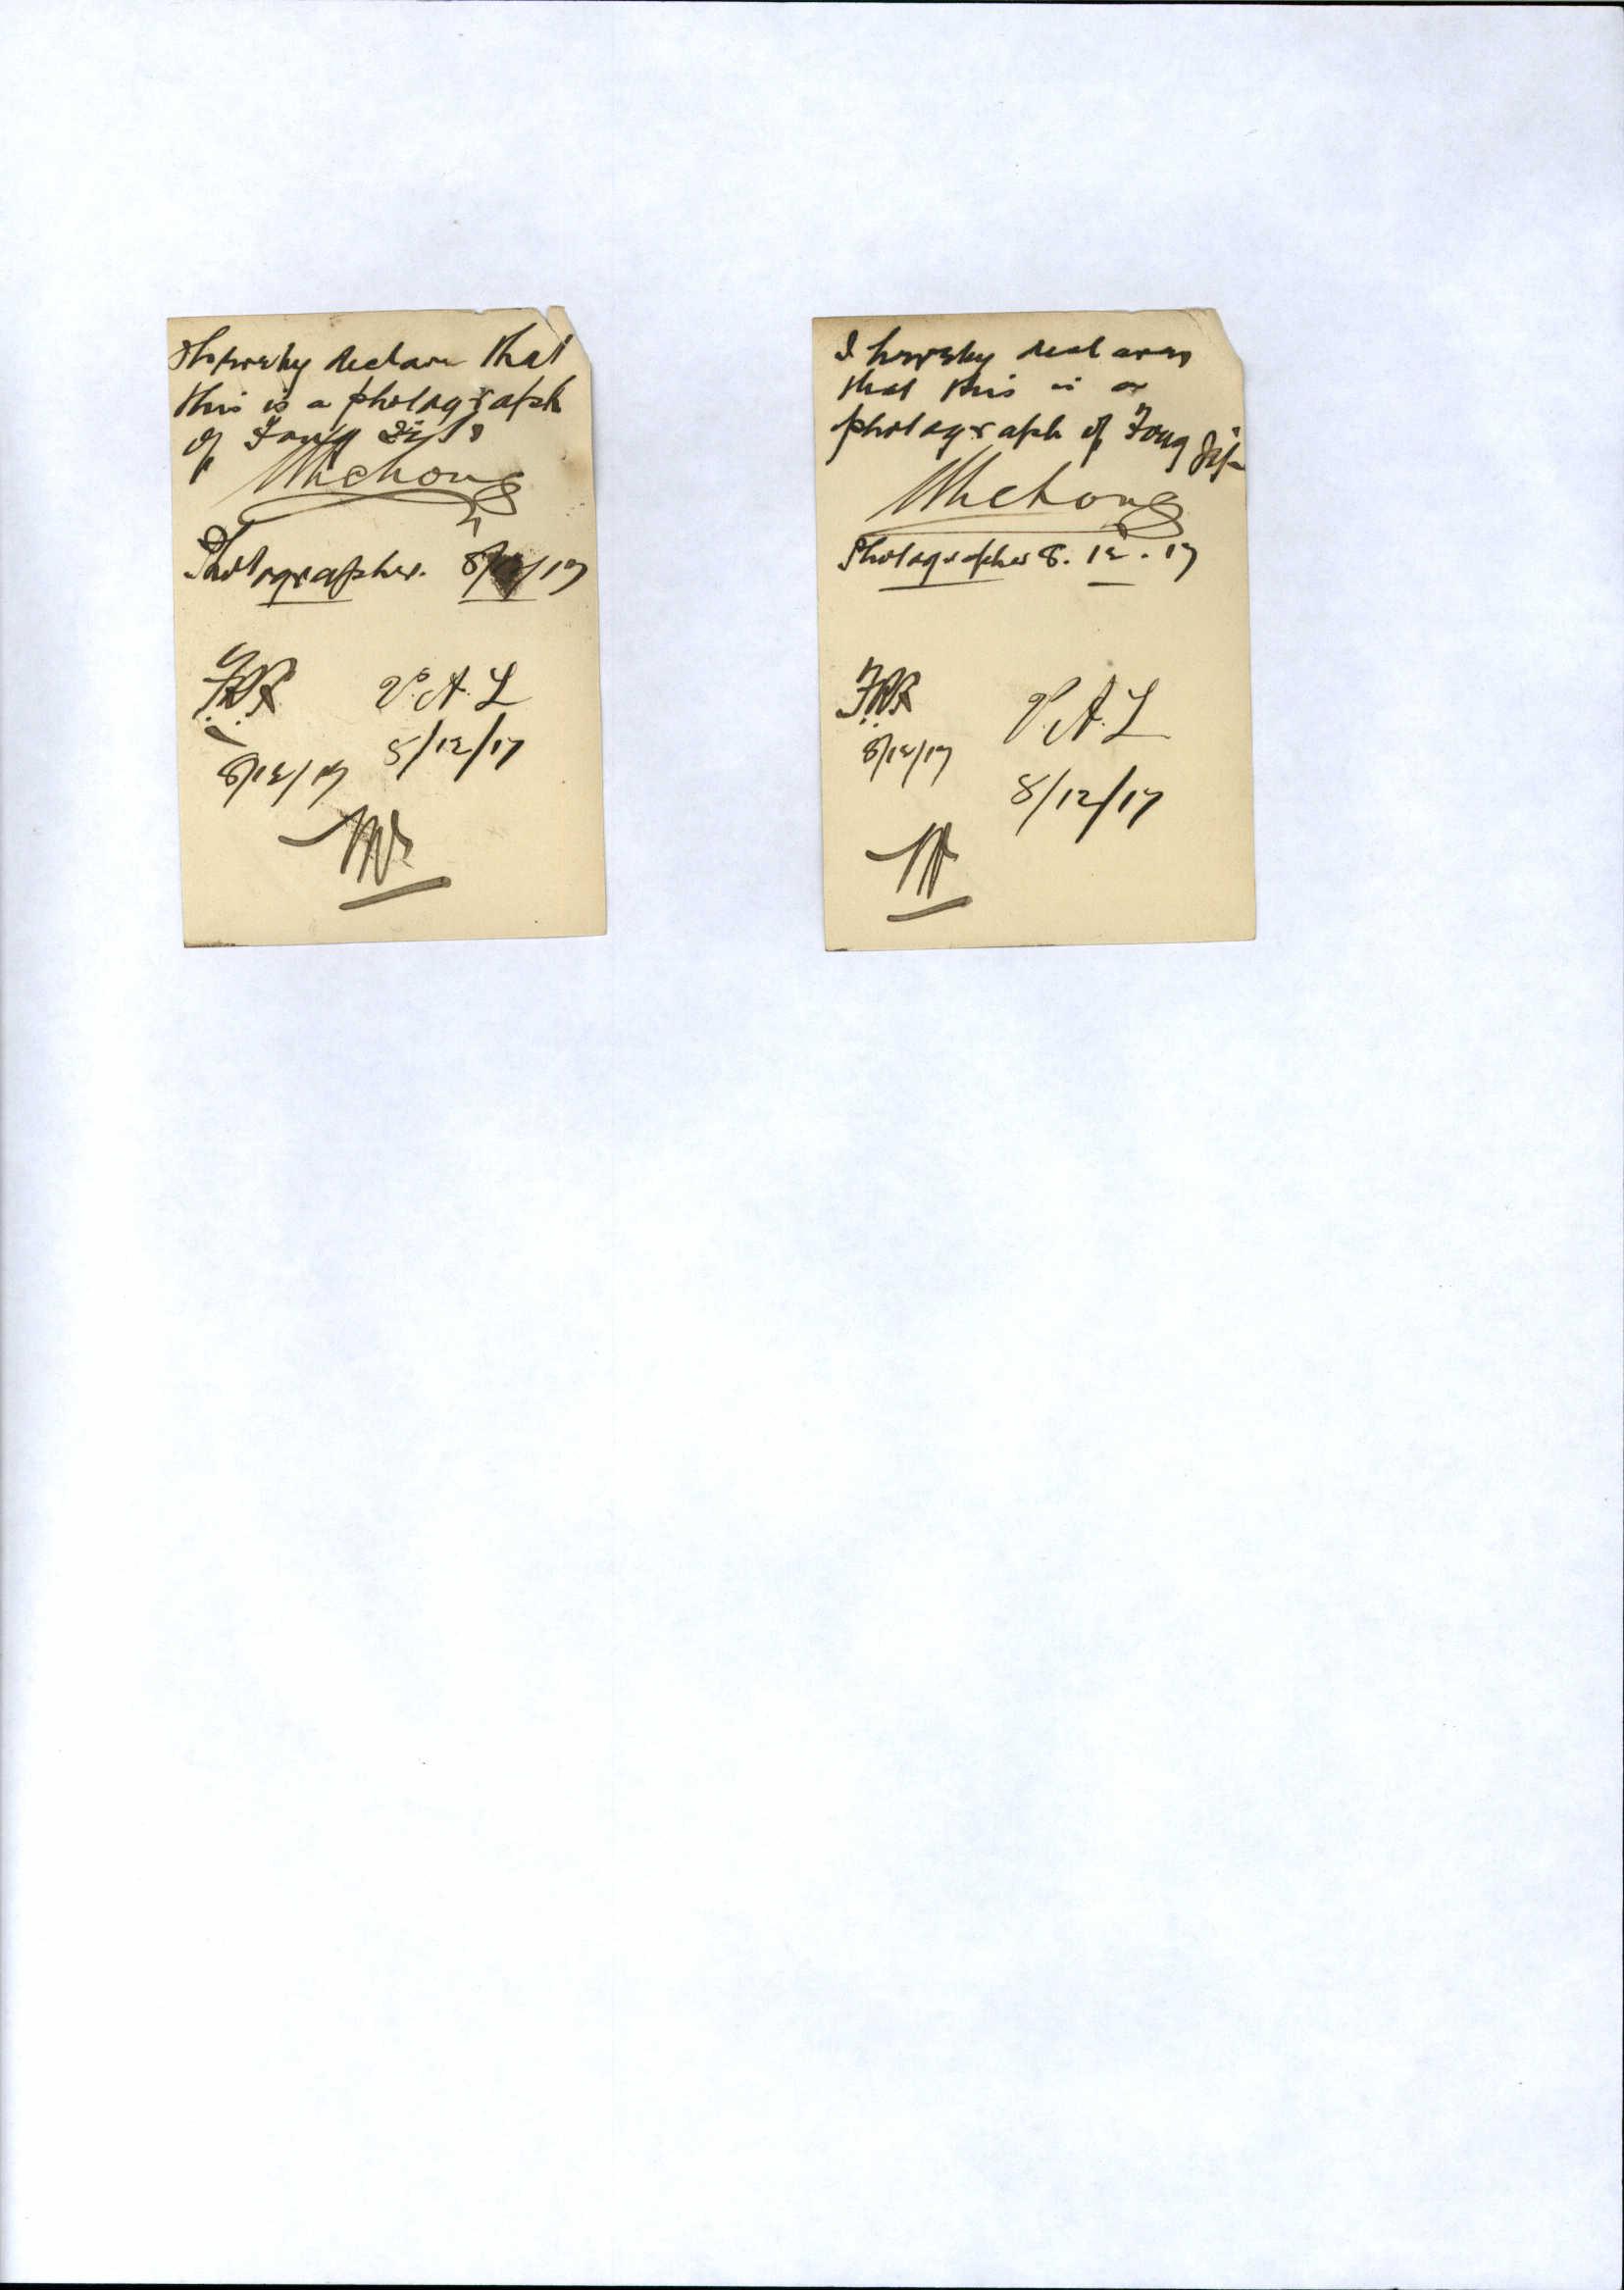 I hereby declare that
this is a photograph
of Fong
Photographer. 8/12/17
F.W.R V.A.L
8/12/17 8/12/17
I hereby declare
that this is a
photograph of Fong
Photographer 8.12.17
V.A.L
8/12/17
8/12/17